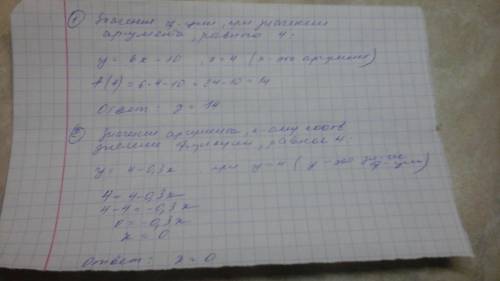 ① Значение ф-ции, при значении
аргумента, равного 4.
y = 6x - 10, x = 4 (x - это аргумент)
f(4) = 6·4-10 = 24-10 = 14
Ответ: y = 14
② Значение аргумента, к-ому соотв
значение функции, равное 4.
y = 4-0,3x при y=4 (y - это зн-ие ф-ции)
4 = 4-0,3x
4-4 = -0,3x
0 = -0,3x
x = 0
Ответ: x = 0